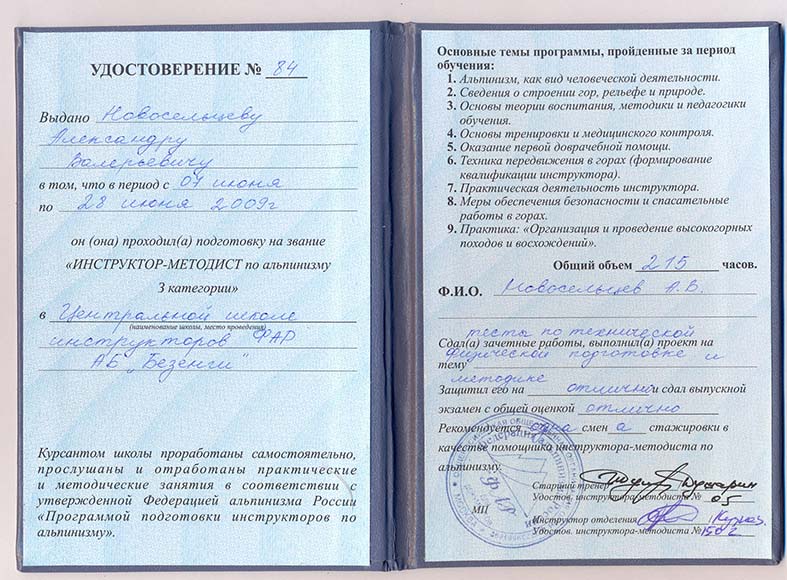 УДОСТОВЕРЕНИЕ № 84
Выдано Новосельцеву
Александру
Валерьевичу
в том, что в период с 07 июня
по 28 июня 2009г
он (она) проходил(а) подготовку на звание
«ИНСТРУКТОР-МЕТОДИСТ по альпинизму
3 категории»
в Центральной школе
(наименование школы, место проведения)
инструкторов ФАР
АБ „Безенги"
Курсантом школы проработаны самостоятельно,
прослушаны и отработаны практические
и методические занятия в соответствии с
утвержденной Федерацией альпинизма России
«Программой подготовки инструкторов по
альпинизму».
Основные темы программы, пройденные за период
обучения:
1. Альпинизм, как вид человеческой деятельности.
2. Сведения о строении гор, рельефе и природе.
3. Основы теории воспитания, методики и педагогики
обучения.
4. Основы тренировки и медицинского контроля.
5. Оказание первой доврачебной помощи.
6. Техника передвижения в горах (формирование
квалификации инструктора).
7. Практическая деятельность инструктора.
8. Меры обеспечения безопасности и спасательные
работы в горах.
9. Практика: «Организация и проведение высокогорных
походов и восхождений».
Общий объем 215 часов.
Ф.И.О. Новосельцев А.В.
тесты по технической
Сдал(а) зачетные работы, выполнил(а) проект на
физической подготовке и
тему
методике
Защитил его на отлично и сдал выпускной
экзамен с общей оценкой отлично
Рекомендуется одна смен а стажировки в
качестве помощника инструктора-методиста по
альпинизму.
Старший тренер
Удостов. инструктора-методиста № 05
МП
Инструктор отделения
Удостов. инструктора-методиста №
ФАР